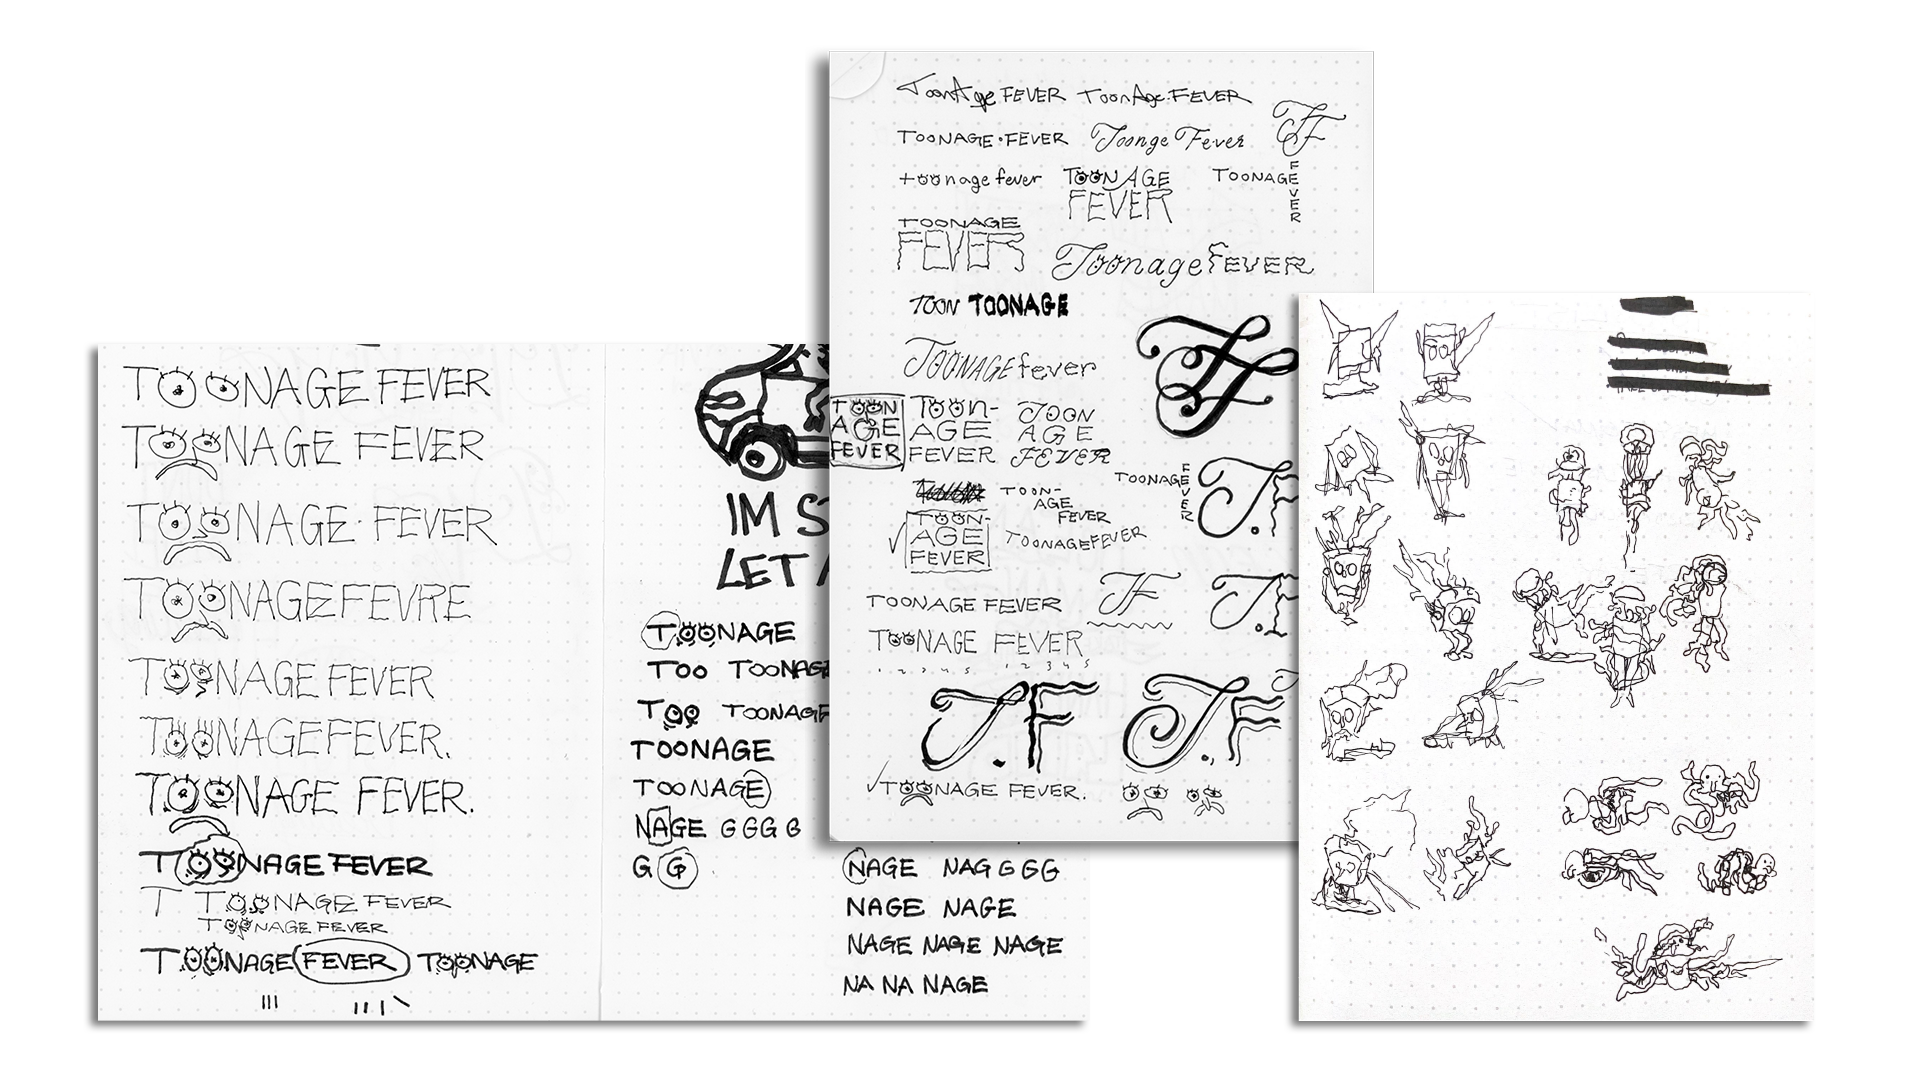 TOONAGE FEVER
TOONAGE FEVER
TOONAGE · FEVER
TOONAGEFEVRE
TOONAGE FEVER
TOONAGEFEVER.
TOONAGE FEVER.
TOONAGE FEVER
T TOONAGE FEVER
TOONAGE FEVER
TOONAGE FEVER TOONAGE
IM S
LET
TOONAGE
TOO TOONAGE
TOO TOONAGE
TOONAGE
TOONAGE
NAGE G G G G
G G
NAGE NAG G G G
NAGE NAGE
NAGE NAGE NAGE
NA NA NAGE
ToonAge FEVER ToonAge·FEVER
TOONAGE·FEVER Toonge Fever TF
toonage fever
TOONAGE
FEVER
TOONAGE
FEVER
TOONAGE
FEVER
Toonage FEVER
TOON TOONAGE
TF
TOONAGE fever
TOON
AGE
FEVER
TOON-
AGE
FEVER
TOON
AGE
FEVER
TOONAGE
FEVER
T.F
TOON-
AGE
FEVER
TOON-
AGE
FEVER
TOONAGEFEVER
TOONAGE FEVER TF
T.F
TOONAGE FEVER
1 2 3 4 5 1 2 3 4 5
T.F T.F
TOONAGE FEVER.